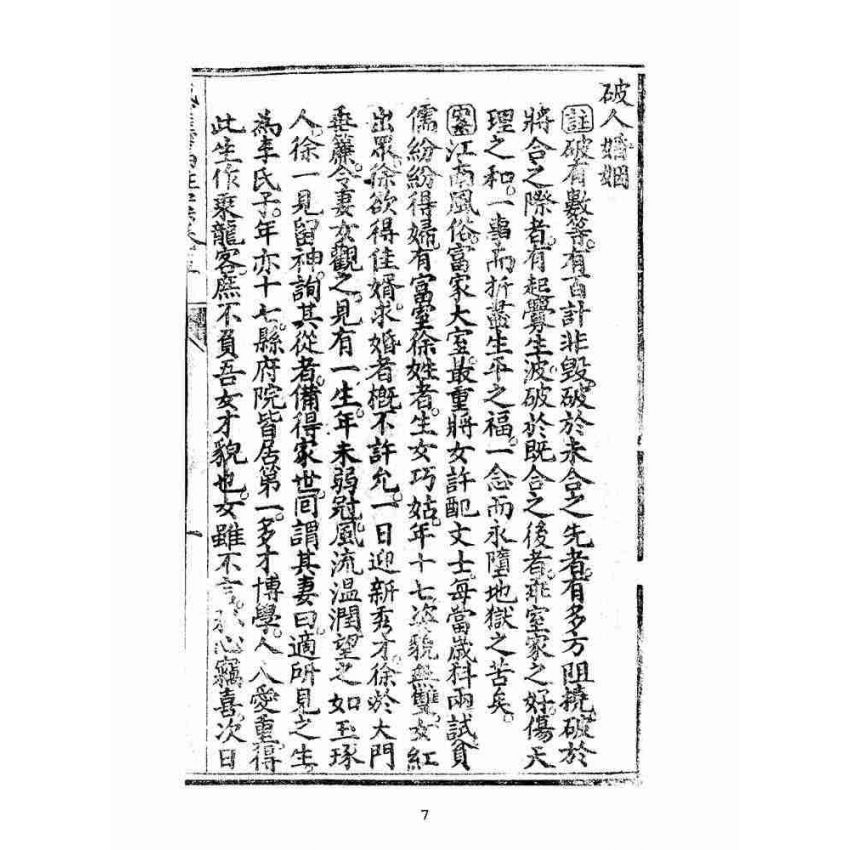 破人婚姻
註破有數等。有百計非毀。破於未合之先者。有多方阻撓。破於
將合之際者。有起釁生波。破於既合之後者。乖室家之好。傷天
理之和。一事而折盡生平之福。一念而永墮地獄之苦矣。
案江南風俗。富家大室。最重將女許配文士。每當歲科兩試。貧
儒紛紛得婦。有富室徐姓者。生女巧姑。年十七。姿貌無雙。女紅
出眾。徐欲得佳婿。求婚者概不許允。一日迎新秀才。徐於大門
垂簾。令妻女觀之。見有一生年未弱冠。風流溫潤。望之如玉琢
人。徐一見留神。詢其從者。備得家世。回謂其妻曰。適所見之生。
為李氏子。年亦十七。縣府院皆居第一。多才博學。人人愛重。得
此生作乘龍客。庶不負吾女才貌也。女雖不言。心竊喜。次日
7